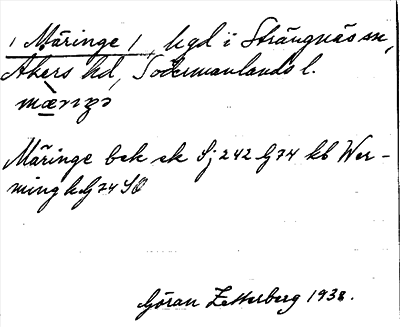 1 Märinge 1, hgd i Strängnäs sn,
Åkers hd, Södermanlands l.
mæ̀rıŋə
Märinge bek ek Sj 242 G74 kb Wer-
ming k G74 SO
Göran Zetterberg 1938.